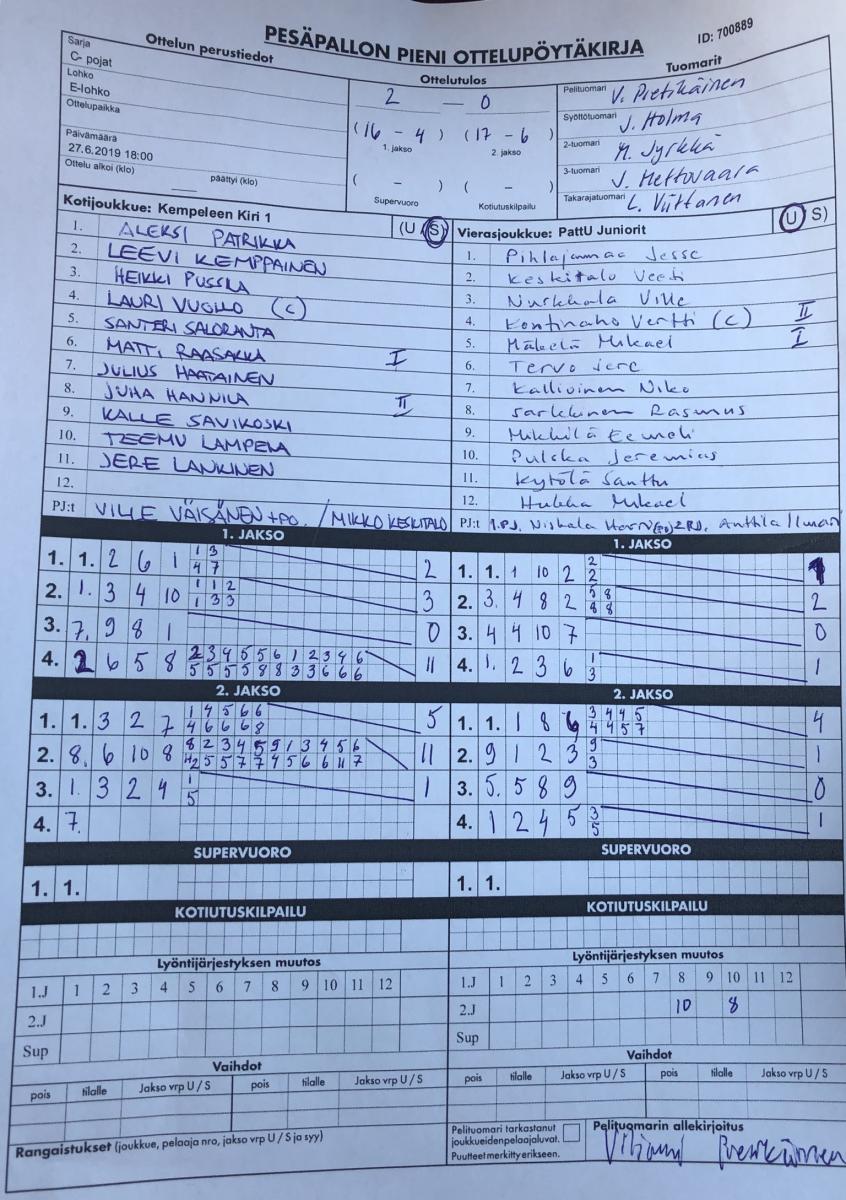 PESÄPALLON PIENI OTTELUPÖYTÄKIRJA
ID: 700889
Ottelun perustiedot
Sarja
C- pojat
Lohko
E-lohko
Ottelupaikka
Päivämäärä
27.6.2019 18:00
Ottelu alkoi (klo) päättyi (klo)
Ottelutulos
2 — 0
(16 - 4) (17 - 6)
1. jakso 2. jakso
( - ) ( - )
Supervuoro Kotiutuskilpailu
Tuomarit
Pelituomari V. Pietikäinen
Syöttötuomari J. Holma
2-tuomari M. Jyrkkä
3-tuomari J. Hettovaara
Takarajatuomari L. Viittanen
Kotijoukkue: Kempeleen Kiri 1 (U S)
1. ALEKSI PATRIKKA
2. LEEVI KEMPPAINEN
3. HEIKKI PUSSKA
4. LAURI VUOLLO (C)
5. SANTERI SALORANTA
6. MATTI RAASAKKA I
7. JULIUS HAATAINEN
8. JUHA HANNILA II
9. KALLE SAVIKOSKI
10. TEEMU LAMPELA
11. JERE LANKINEN
12.
PJ:t VILLE VÄISÄNEN +PO. / MIKKO KESKITALO
Vierasjoukkue: PattU Juniorit (U S)
1. Pihlajamaa Jesse
2. Keskitalo Veeti
3. Nurkkala Ville
4. Kontinaho Vertti (c) II
5. Mäkelä Mikael I
6. Tervo Jere
7. Kallioinen Niko
8. Sarkkinen Rasmus
9. Mikkilä Eemeli
10. Pulska Jeremias
11. Kytölä Santtu
12. Hukka Mikael
PJ:t 1.PJ. Niskala Harri (po) 2.PJ. Anttila Ilmari
1. JAKSO
1. 1. 2 6 1 1 3 2
4 7
2. 1. 3 4 10 1 1 2 3
1 3 3
3. 7. 9 8 1 0
4. 2 6 5 8 2 3 4 5 5 6 1 2 3 4 6 11
5 5 5 5 8 8 3 3 6 6 6
2. JAKSO
1. 1. 3 2 7 1 4 5 6 6 5
4 6 6 6 8
2. 8. 6 10 8 8 2 3 4 5 9 1 3 4 5 6 11
3. 1. 3 2 4 1 1
5
4. 7.
1. JAKSO
1. 1. 1 10 2 2 1
2
2. 3. 4 8 2 5 8 2
8 8
3. 4 4 10 7 0
4. 1. 2 3 6 1 1
3
2. JAKSO
1. 1. 1 8 6 3 4 4 5 4
4 4 5 7
2. 9 1 2 3 9 1
3
3. 5. 5 8 9 0
4. 1 2 4 5 3 1
5
SUPERVUORO
1. 1.
SUPERVUORO
1. 1.
KOTIUTUSKILPAILU
KOTIUTUSKILPAILU
Lyöntijärjestyksen muutos
1.J 1 2 3 4 5 6 7 8 9 10 11 12
2.J
Sup
Lyöntijärjestyksen muutos
1.J 1 2 3 4 5 6 7 8 9 10 11 12
2.J 10 8
Sup
Vaihdot
pois tilalle Jakso vrp U / S pois tilalle Jakso vrp U / S
Vaihdot
pois tilalle Jakso vrp U / S pois tilalle Jakso vrp U / S
Rangaistukset (joukkue, pelaaja nro, jakso vrp U / S ja syy)
Pelituomari tarkastanut
joukkueidenpelaajaluvat.
Puutteet merkitty erikseen.
Pelituomarin allekirjoitus